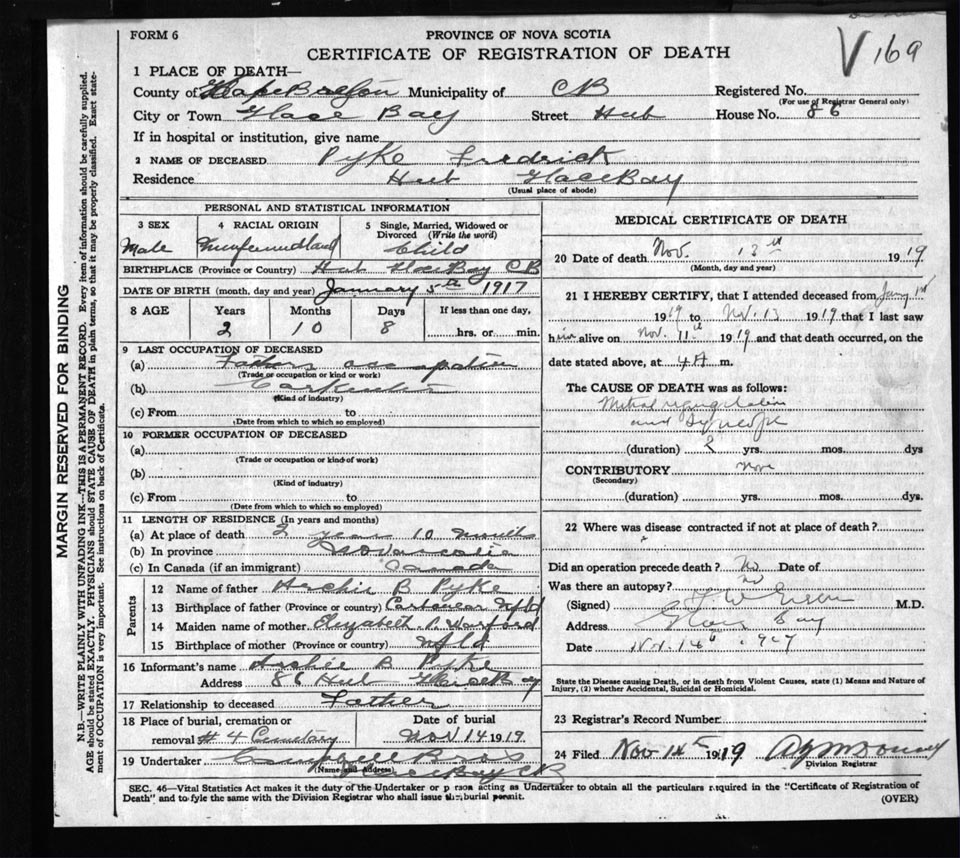 FORM 6
PROVINCE OF NOVA SCOTIA
CERTIFICATE OF REGISTRATION OF DEATH
V 169
1 PLACE OF DEATH—
County of Cape Breton Municipality of CB Registered No.
(For use of Registrar General only)
City or Town Glace Bay Street Hub House No. 86
If in hospital or institution, give name
2 NAME OF DECEASED Pyke Fredrick
Residence Hub Glace Bay
(Usual place of abode)
PERSONAL AND STATISTICAL INFORMATION
3 SEX 4 RACIAL ORIGIN 5 Single, Married, Widowed or Divorced (Write the word)
Male Newfoundland Child
BIRTHPLACE (Province or Country) Hub Glace Bay CB
DATE OF BIRTH (month, day and year) January 5th 1917
8 AGE Years Months Days If less than one day,
2 10 8 hrs. or min.
9 LAST OCCUPATION OF DECEASED
(a) Fathers occupation
(Trade or occupation or kind of work)
(b) Carpenter
(Kind of industry)
(c) From to
(Date from which to which so employed)
10 FORMER OCCUPATION OF DECEASED
(a)
(Trade or occupation or kind of work)
(b)
(Kind of industry)
(c) From to
(Date from which to which so employed)
11 LENGTH OF RESIDENCE (In years and months)
(a) At place of death 2 years 10 months
(b) In province
(c) In Canada (if an immigrant) Canada
Parents
12 Name of father Archie B Pyke
13 Birthplace of father (Province or country) Carbonear Nfld
14 Maiden name of mother Elizabeth
15 Birthplace of mother (Province or country) Nfld
16 Informant's name Archie B Pyke
Address 86 Hub Glace Bay
17 Relationship to deceased Father
18 Place of burial, cremation or Date of burial
removal # 4 Cemetary Nov 14 1919
19 Undertaker
(Name and Address) Glace Bay CB
MEDICAL CERTIFICATE OF DEATH
20 Date of death Nov. 13th 1919
(Month, day and year)
21 I HEREBY CERTIFY, that I attended deceased from
1919 to Nov. 13 1919 that I last saw
him alive on Nov. 11th 1919 and that death occurred, on the
date stated above, at 4 A m.
The CAUSE OF DEATH was as follows:
Mitral regurgitation
and Syncope
(duration) 2 yrs. mos. dys
CONTRIBUTORY
(Secondary)
(duration) yrs. mos. dys.
22 Where was disease contracted if not at place of death?
Did an operation precede death? No Date of
Was there an autopsy? no
(Signed) M.D.
Address Glace Bay
Date Nov. 14th
State the Disease causing Death, or in death from Violent Causes, state (1) Means and Nature of
Injury, (2) whether Accidental, Suicidal or Homicidal.
23 Registrar's Record Number
24 Filed Nov 14 1919
Division Registrar
SEC. 46—Vital Statistics Act makes it the duty of the Undertaker or person acting as Undertaker to obtain all the particulars required in the "Certificate of Registration of
Death" and to fyle the same with the Division Registrar who shall issue the burial permit. (OVER)
MARGIN RESERVED FOR BINDING
N.B.—WRITE PLAINLY WITH UNFADING INK—THIS IS A PERMANENT RECORD. Every item of information should be carefully supplied.
AGE should be stated EXACTLY. PHYSICIANS should STATE CAUSE OF DEATH in plain terms, so that it may be properly classified. Exact state-
ment of OCCUPATION is very important. See instructions on back of Certificate.